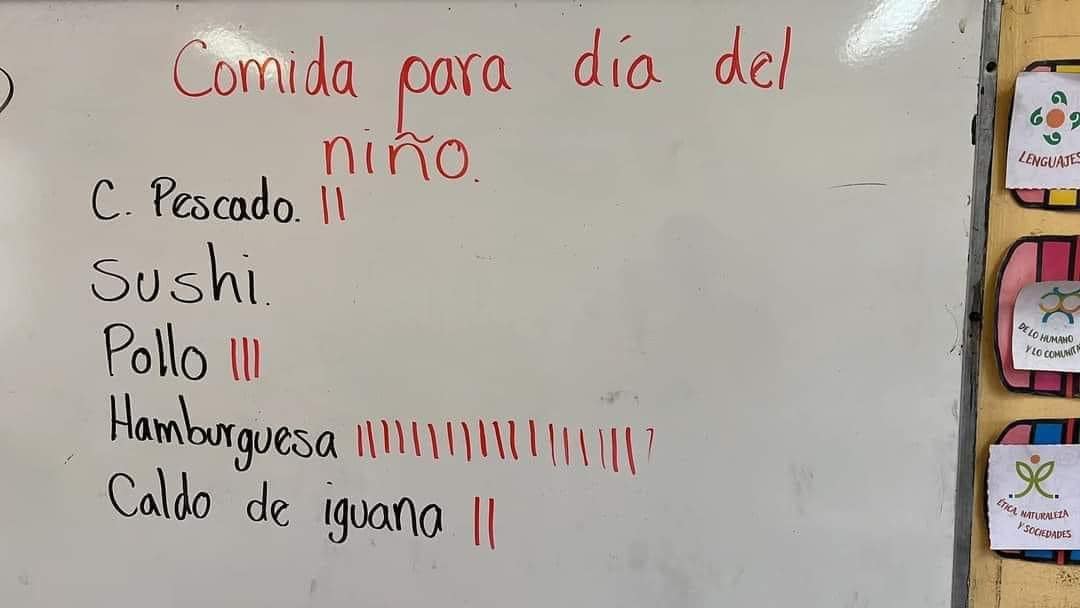 Comida para día del
niño.
C. Pescado. ||
Sushi.
Pollo |||
Hamburguesa ||||||||||||||||||
Caldo de iguana ||
LENGUAJES
DE LO HUMANO
Y LO
ÉTICA, NATURALEZA
Y SOCIEDADES